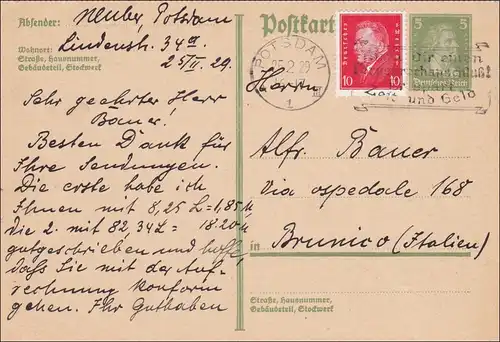 Absender: Neuber, Potsdam
Wohnort: Lindenstr. 34a
Straße, Hausnummer,
Gebäudeteil, Stockwerk
25/II. 29
Sehr geehrter Herr
Bauer!
Besten Dank für
Ihre Sendungen.
Die erste habe ich
Ihnen mit 8,25 L = 1,85 M
die 2. mit 82,34 L = 18.20 M
gutgeschrieben und hoffe,
daß Sie mit der Auf-
rechnung konform
gehen. Ihr Guthaben
Postkarte
POTSDAM
25.2.29
1
Deutsches Reich
10 10
5 5
Deutsches Reich
Dir einen
und Geld
Herrn
Alfr. Bauer
Via ospedale 168
in Brunico (Italien)
Straße, Hausnummer,
Gebäudeteil, Stockwerk